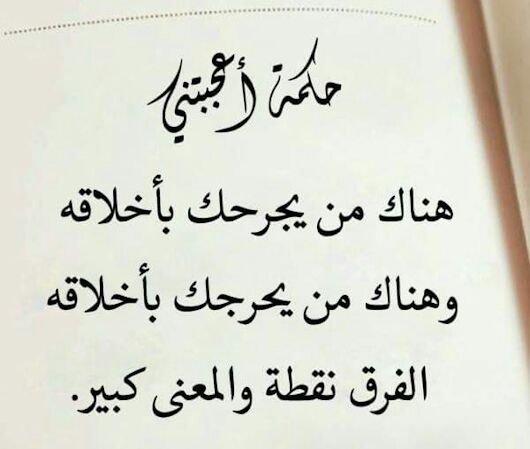 حكمة أعجبتني
هناك من يجرحك بأخلاقه
وهناك من يحرجك بأخلاقه
الفرق نقطة والمعنى كبير.